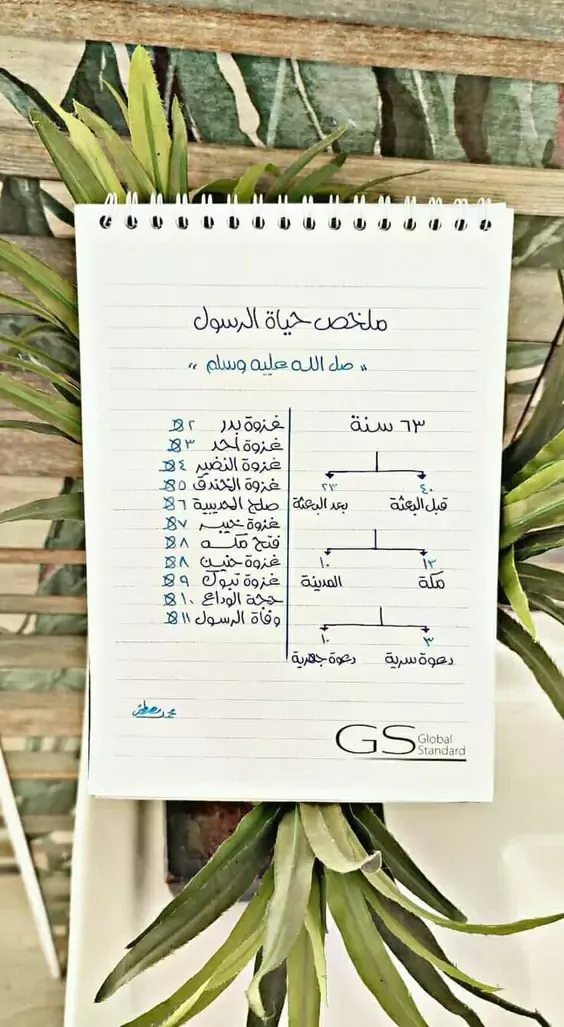 ملخص حياة الرسول
" صل الله عليه وسلم "
٦٣ سنة
٤٠ ٢٣
قبل البعثة بعد البعثة
١٣ ١٠
مكة المدينة
٣ ١٠
دعوة سرية دعوة جهرية
غزوة بدر ٢ هـ
غزوة أحد ٣ هـ
غزوة النضير ٤ هـ
غزوة الخندق ٥ هـ
صلح الحديبية ٦ هـ
غزوة خيبر ٧ هـ
فتح مكه ٨ هـ
غزوة حنين ٨ هـ
غزوة تبوك ٩ هـ
حجة الوداع ١٠ هـ
وفاة الرسول ١١ هـ
محمد مصطفى
GS Global
Standard